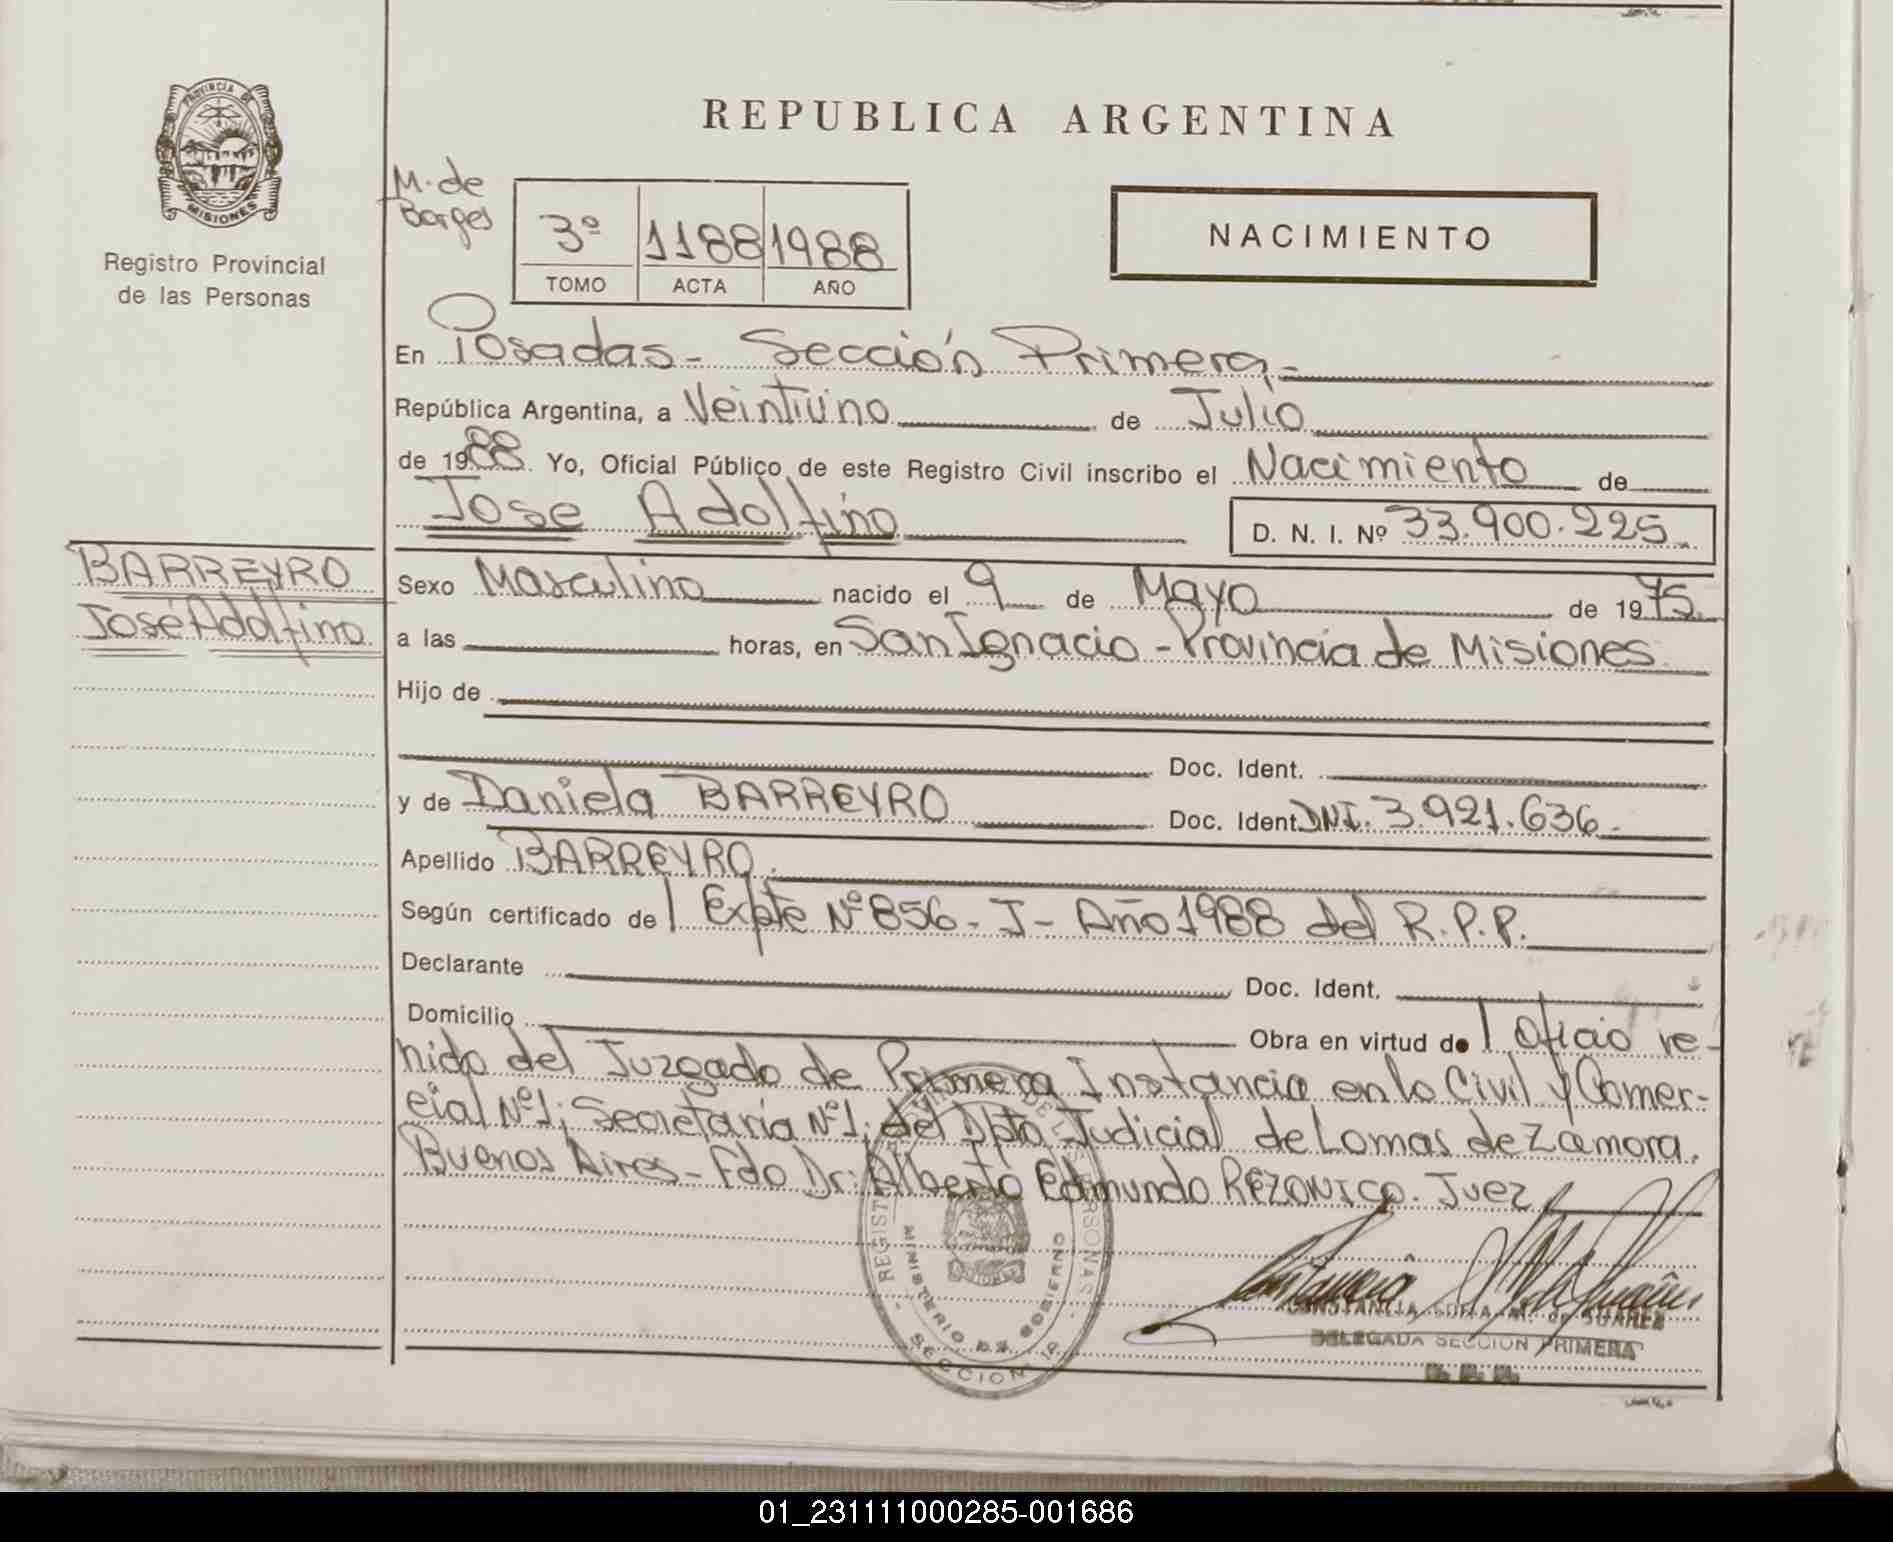 REPUBLICA ARGENTINA
PROVINCIA DE
MISIONES
Registro Provincial
de las Personas
M. de
Borges
3º 1188 1988
TOMO ACTA AÑO
NACIMIENTO
En Posadas - Sección Primera.-
República Argentina, a Veintiuno de Julio
de 1988. Yo, Oficial Público de este Registro Civil inscribo el Nacimiento de
Jose Adolfino D. N. I. Nº 33.900.225
BARREYRO
José Adolfino
Sexo Masculino nacido el 9 de Mayo de 1975
a las horas, en San Ignacio - Provincia de Misiones.
Hijo de
Doc. Ident.
y de Daniela BARREYRO Doc. Ident. DNI. 3.921.636.
Apellido BARREYRO.
Según certificado de | Expte Nº 856 - J - Año 1988 del R.P.P.
Declarante Doc. Ident.
Domicilio Obra en virtud de | Oficio re-
nido del Juzgado de Primera Instancia en lo Civil y Comer-
cial Nº1; Secretaría Nº1; del Dpto Judicial de Lomas de Zamora.
Buenos Aires - Fdo Dr: Alberto Edmundo REZONICO. Juez
MINISTERIO DE GOBIERNO
SECCION 1ª
DELEGADA SECCION PRIMERA
01_231111000285-001686